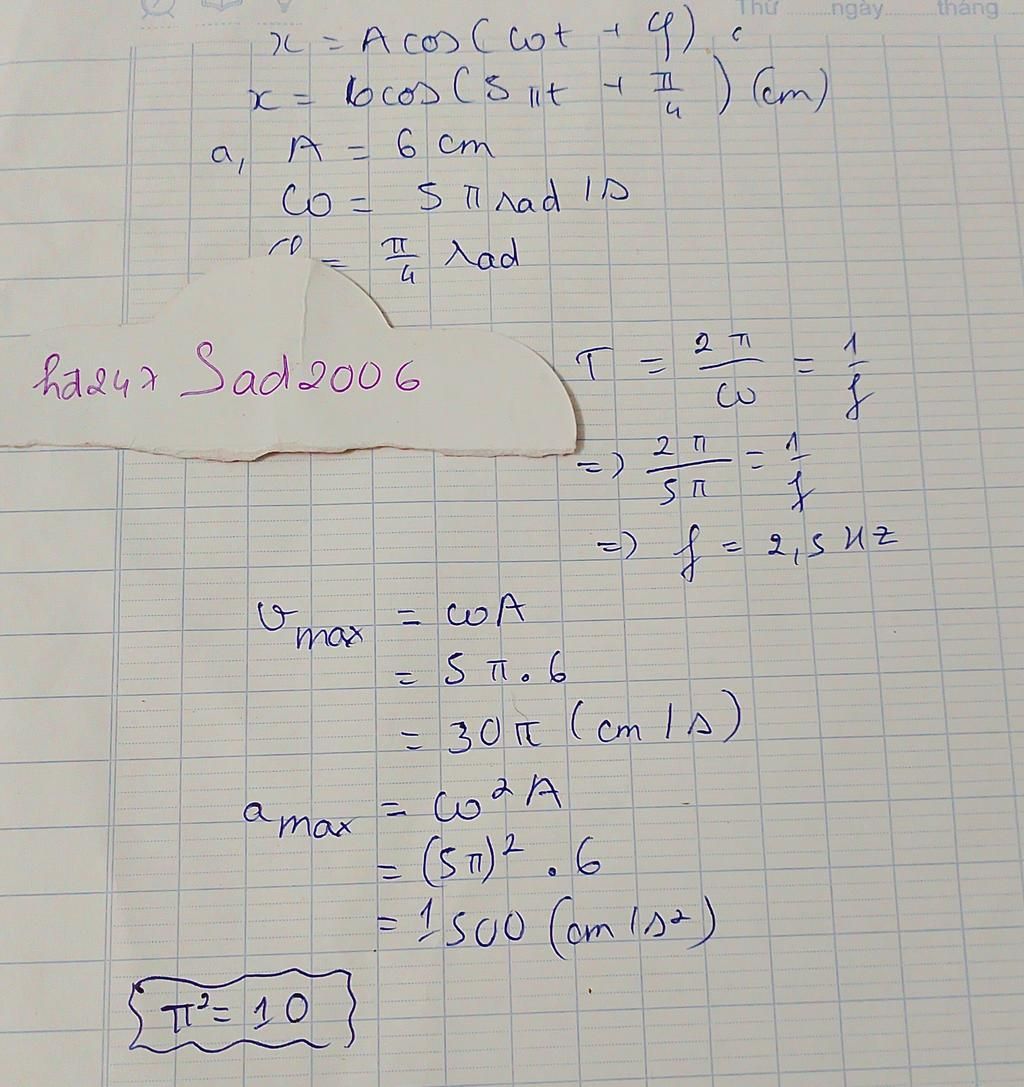 Thứ ......... ngày ......... tháng
x = A cos(ωt + φ)
x = 6cos(5πt + π/4) (cm)
a, A = 6 cm
ω = 5π rad/s
φ = π/4 rad
hd247 Sad2006
T = 2π/ω = 1/f
=> 2π/5π = 1/f
=> f = 2,5 Hz
v max = ωA
= 5π.6
= 30π (cm/s)
a max = ω²A
= (5π)² . 6
= 1500 (cm/s²)
π² = 10